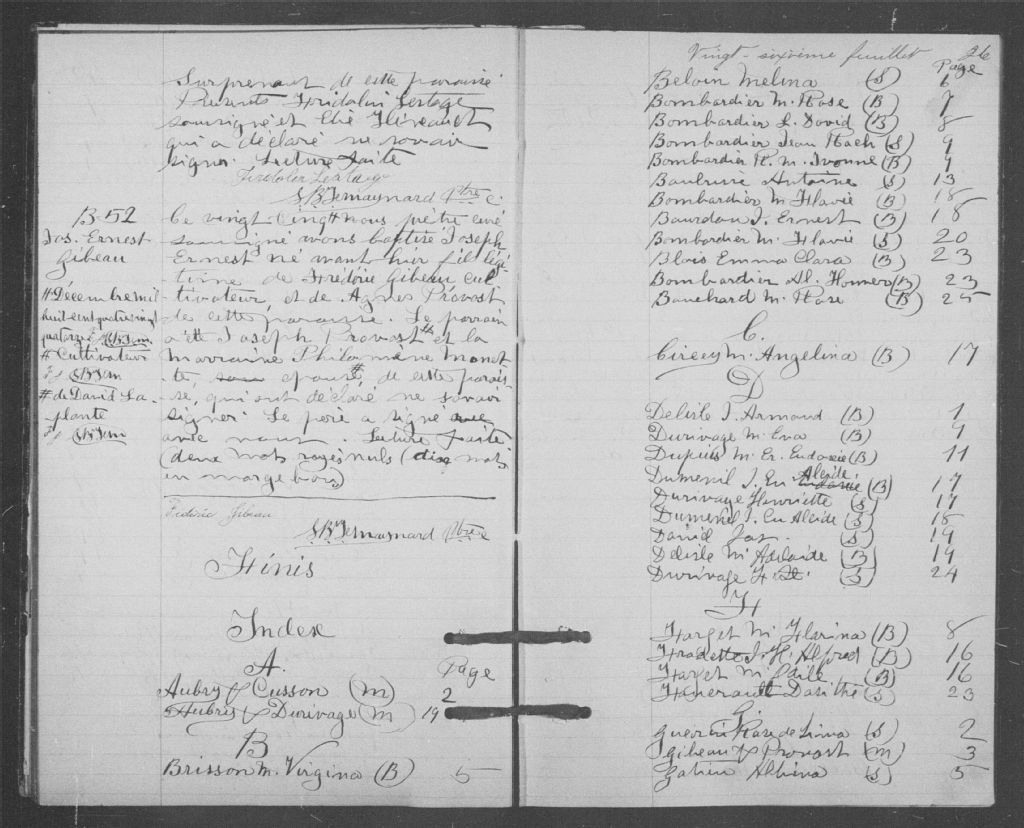 Surprenant de cette paroisse
Présents Fridolin Lestage
soussigné et Elie Héneault
qui a déclaré ne savoir
signer. Lecture faite
Fridolin Lestage
S.B. Jemaynard Ptre c.
B-52
Jos. Ernest
Gibeau
Ce vingt cinq # nous prêtre curé
soussigné avons baptisé Joseph
Ernest né avant hier fils légi-
time de Frédéric Gibeau cul
tivateur, et de Agnès Provost
de cette paroisse. Le parrain
a été Joseph Provost # et la
marraine Philomène Monet-
te, sous épouse #, de cette parois-
se, qui ont déclaré ne savoir
signer. Le père a signé avec
avec nous. Lecture faite
(deux mots rayés nuls (dix mots
en marge bons)
# Décembre mil
huit cent quatre vingt
quatorze
# Cultivateur
# de David La-
plante
Fédéric Gibeau
S.B. Jemaynard Ptre c
Finis
Index
A. Page
Aubry & Cusson (M) 2
Aubry & Durivage (M) 19
B
Brisson M. Virgina (B) 5
Vingt-sixième feuillet 26
Page
Beloin Melina (S) 6
Bombardier M. Rose (B) 7
Bombardier L. David (B) 8
Bombardier Jean Rach (S) 9
Bombardier R. M. Ivonne (B) 9
Antoine (S) 13
Bombardier M. Flavie (B) 18
Bourdon J. Ernest (B) 18
Bombardier M. Flavie (S) 20
Blois Emma Clara (B) 23
Bombardier Al. Homer (B) 23
Bouchard M. Rose (B) 25
C.
Circey M. Angelina (B) 17
D
Delisle J. Armand (B) 1
Durivage M. Eva (B) 9
Dupuis M. Er. Eudoxie (B) 11
Dumenil J. Eu Alcide. (B) 17
Durivage Henriette (S) 17
Dumenil J. Eu Alcide (S) 18
David Jos. (S) 19
Delisle M. Adelaide (B) 19
Durivage F. X. (S) 24
F
Forget M. Florina (B) 8
Fradette J. H. Alfred (B) 16
Forget M. (B) 16
Dorithé (S) 23
G.
Guerin Rose de Lima (S) 2
Gibeau & Provost (M) 3
Albina (S) 5